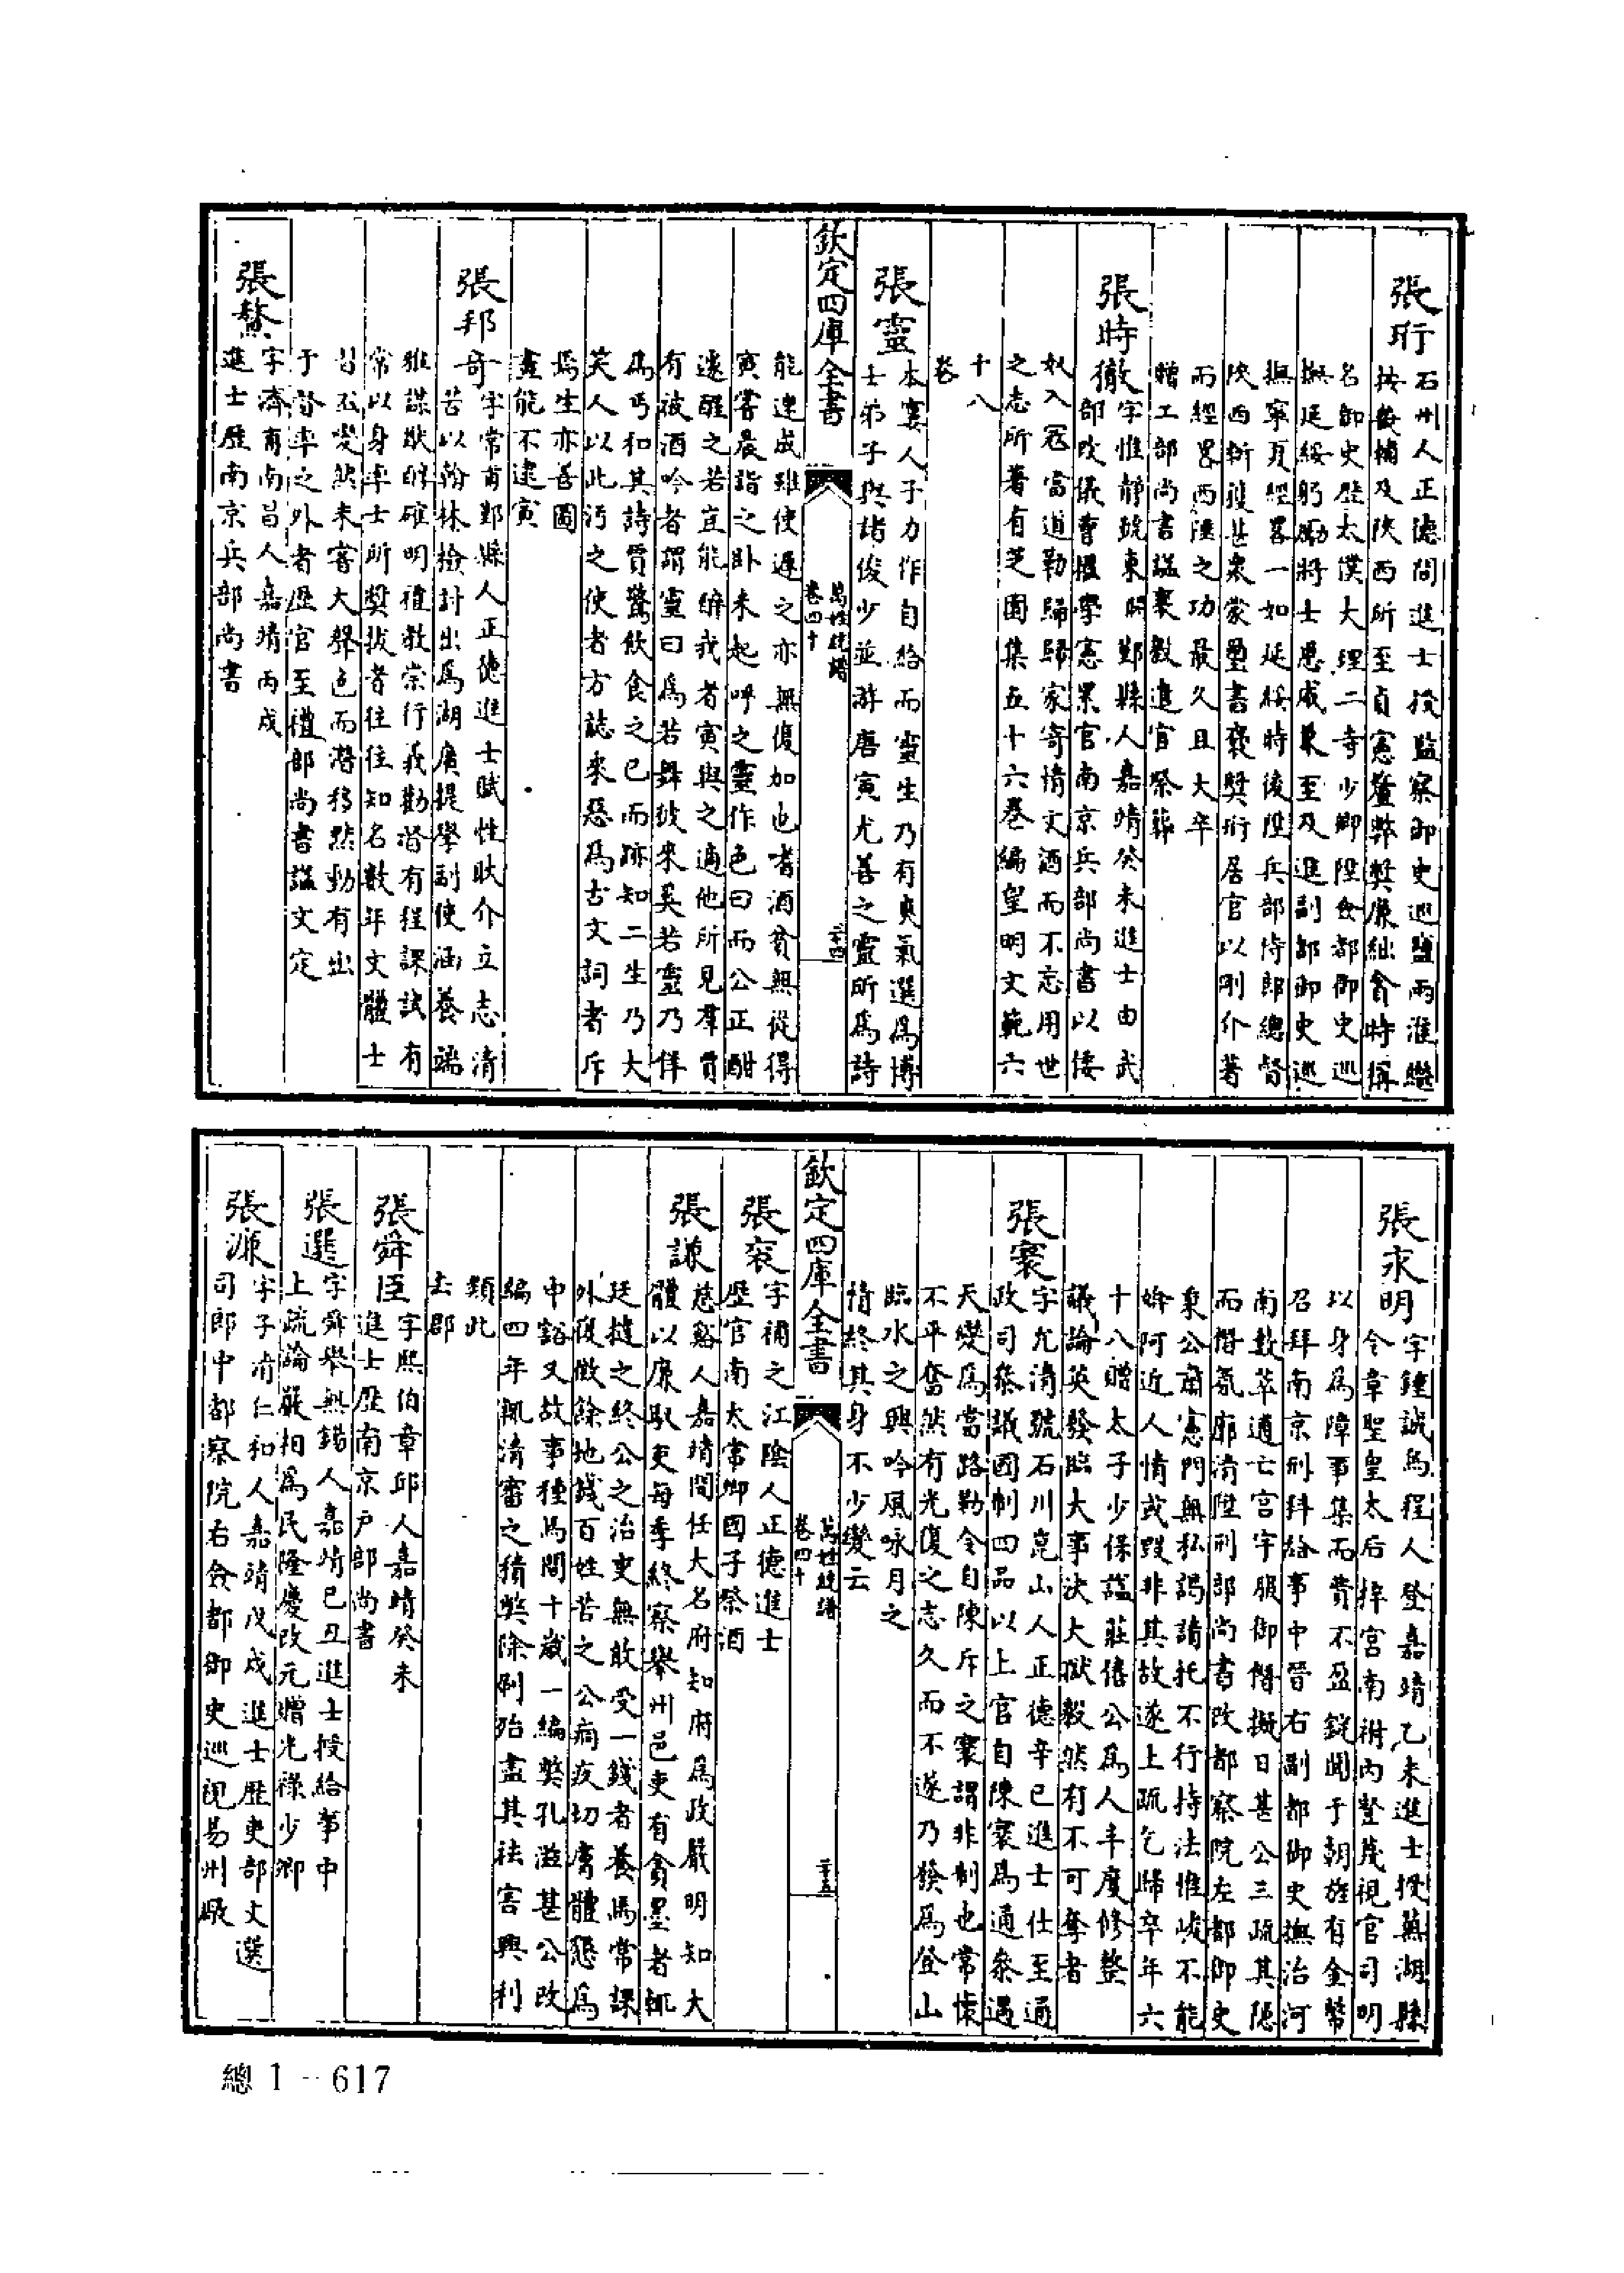 張珩
石州人正德間進士授監察御史巡鹽兩淮繼
按安輔及陝西所至貞憲釐弊獎廉絀貪時稱
名御史歷太僕大理二寺少卿陞僉都御史巡
撫延綏躬勵將士恩威兼至及進副都御史巡
撫寧夏經畧一如延綏時後陞兵部侍郎總督
陝西斬獲甚衆蒙璽書褒獎珩居官以剛介著
而經畧西陲之功最久且大卒
贈工部尚書謚襄敏遣官祭葬
張時徹
字惟靜號東沙鄞縣人嘉靖癸未進士由武
部改儀曹擢學憲累官南京兵部尚書以倭
奴入寇當道勒歸歸家寄情文酒而不忘用世
之志所著有芝園集五十六卷編皇明文範六
十八
卷
張靈
本窶人子力作自給而靈生乃有爽氣選爲博
士弟子與諸俊少並游唐寅尤善之靈所爲詩
欽定四庫全書
萬姓統譜
卷四十
二十四
能速成雖使遲之亦無復加也嗜酒貧無從得
寅嘗晨詣之卧未起呼之靈作色曰而公正酣
遽醒之若豈能餔我者寅與之適他所見羣賈
有被酒吟者謂靈曰爲若舞彼來奚若靈乃佯
爲丐和其詩賈驚飲食之已而跡知二生乃大
笑人以此污之使者方誌來惡爲古文詞者斥
爲生亦善圖
畫能不逮寅
張邦奇
字常甫鄞縣人正德進士賦性耿介立志清
苦以翰林檢討出爲湖廣提學副使涵養端
雅謀猷醇確明禮教崇行義勸督有程課試有
常以身率士所奬拔者往往知名數年文體士
習丕變然未嘗大聲色而潛移默動有出
于督率之外者歷官至禮部尚書謚文定
張鰲
字濟甫南昌人嘉靖丙戌
進士歷南京兵部尚書
張永明
字鍾誠烏程人登嘉靖乙未進士授蕪湖縣
令章聖皇太后梓宮南祔內豎蔑視官司明
以身爲障事集而費不盈錠聞于朝旌有金幣
召拜南京刑科給事中晉右副都御史撫治河
南數萃逋亡宮宇服御僭擬日甚公三疏其隱
而僭氛廓清陞刑部尚書改都察院左都御史
秉公肅憲門無私謁請托不行持法惟峻不能
媕阿近人情或毀非其故遂上疏乞歸卒年六
十八贈太子少保謚莊僖公爲人丰度修整
議論英發臨大事決大獄毅然有不可奪者
張寰
字允清號石川崑山人正德辛巳進士仕至通
政司叅議國制四品以上官自陳寰爲通叅遇
天變爲當路勒令自陳斥之寰謂非制也常懷
不平奮然有光復之志久而不遂乃發爲登山
臨水之興吟風咏月之
情終其身不少變云
欽定四庫全書
萬姓統譜
卷四十
二十五
張袞
字補之江陰人正德進士
歷官南太常卿國子祭酒
張謙
慈谿人嘉靖間任大名府知府爲政嚴明知大
體以廉馭吏每季終察舉州邑吏有貪墨者輒
廷撻之終公之治吏無敢受一錢者養馬常課
外復徵餘地錢百姓苦之公痌疚切膚體懇爲
申豁又故事種馬閒十歲一編獘孔滋甚公改
編四年輒清審之積獘除剔殆盡其袪害興利
類此
去郡
張舜臣
字熙伯章邱人嘉靖癸未
進士歷南京户部尚書
張選
字舜舉無錫人嘉靖己丑進士授給事中
上疏論嚴相爲民隆慶改元贈光祿少卿
張濂
字子清仁和人嘉靖戊戌進士歷吏部文選
司郎中都察院右僉都御史巡視易州廠
總1-617